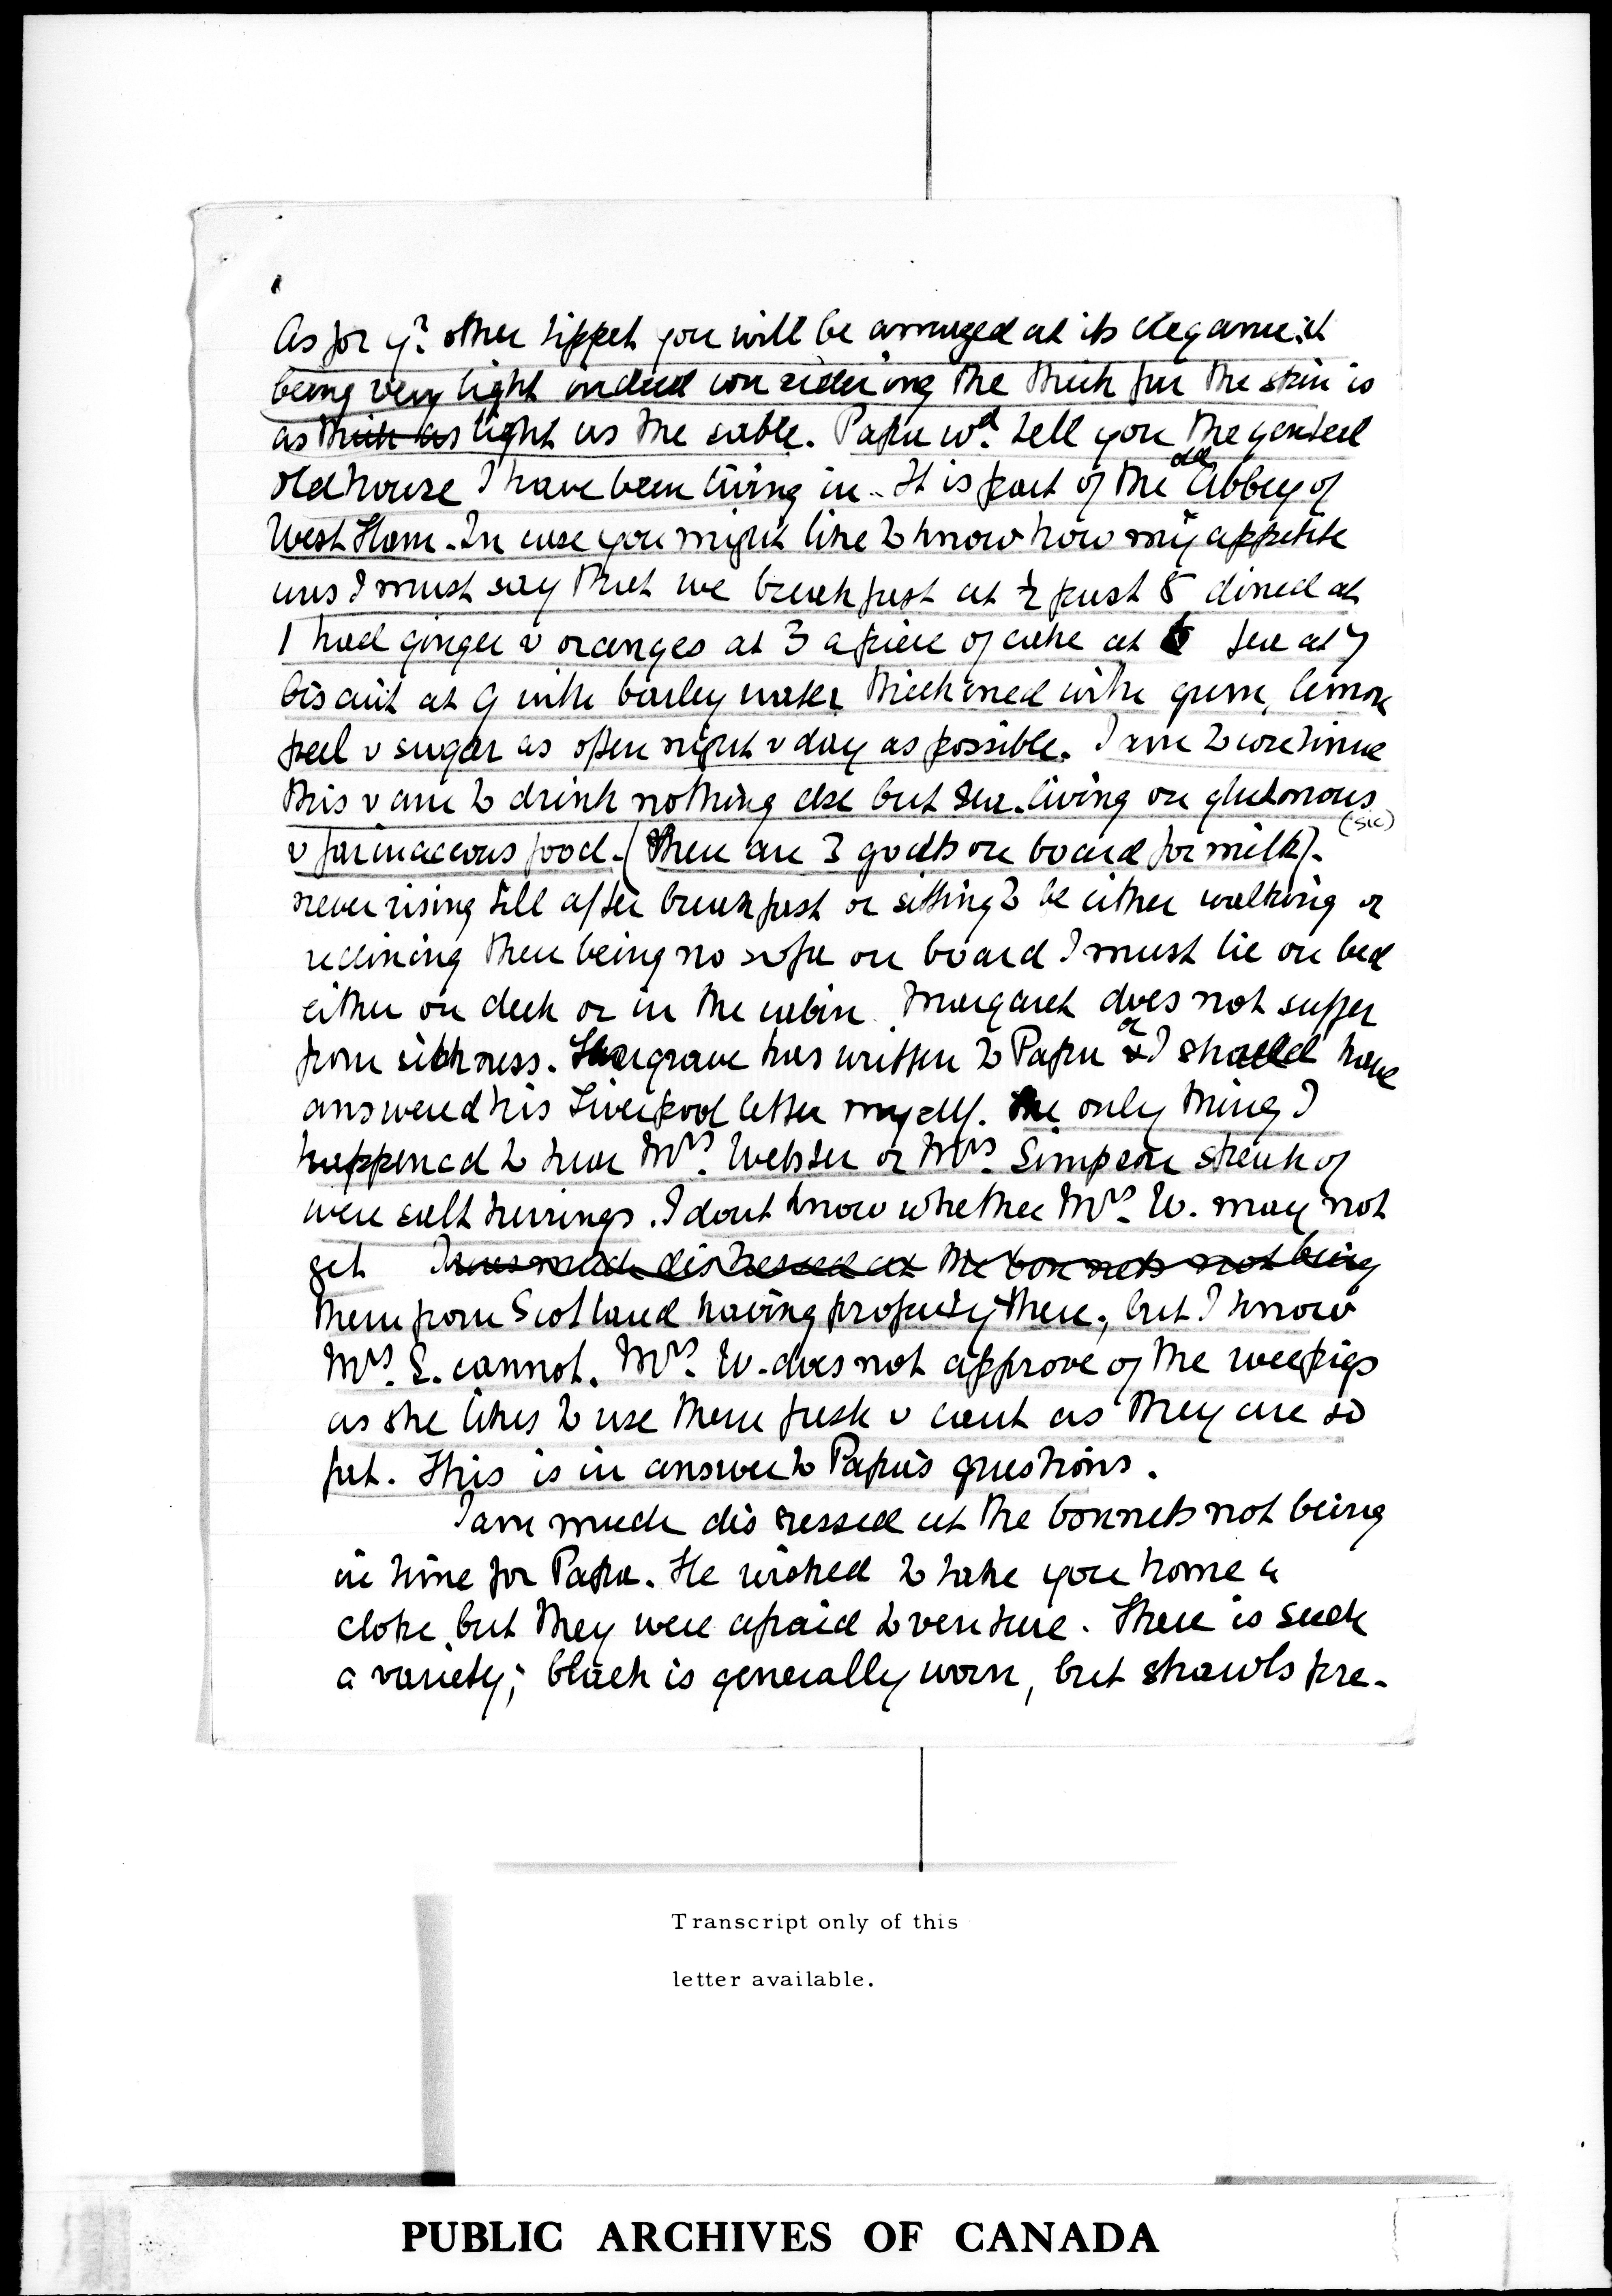 As for yr. other tippet you will be amazed at its elegance it
being very light indeed considering the thick fur the skin is
as thick as light as the sable. Papa wd. tell you the genteel
old house I have been living in. It is part of the old Abbey of
West Ham. In case you might like to know how my appetite
was I must say that we breakfast at ½ past 8 dined at
1 had ginger & oranges at 3 a piece of cake at 5 tea at 7
biscuit at 9 with barley water thickened with gum, lemon
peel & sugar as often night & day as possible. I am to continue
this & am to drink nothing else but tea. living on glutonous
(sic)
& farinaceous food. (there are 3 goats on board for milk).
never rising till after breakfast or sitting to be either walking or
reclining there being no sofa on board I must lie on bed
either on deck or in the cabin. Margaret does not suffer
from sickness. Hargrave has written to Papa or I should have
answered his Liverpool letter myself. The only thing I
happened to hear Mrs. Webster or Mrs. Simpson speak of
were salt herrings. I dont know whether Mrs. W. may not
get I was much distressed at the bonnets not being
them from Scotland having property there, but I know
Mrs. S. cannot. Mrs. W. does not approve of the wee pigs
as she likes to use them fresh & cant as they are so
fat. This is in answer to Papa's questions.
I am much distressed at the bonnets not being
in time for Papa. He wished to take you home a
cloke, but they were afraid to venture. There is such
a variety; black is generally worn, but shawls pre-
Transcript only of this
letter available.
PUBLIC ARCHIVES OF CANADA